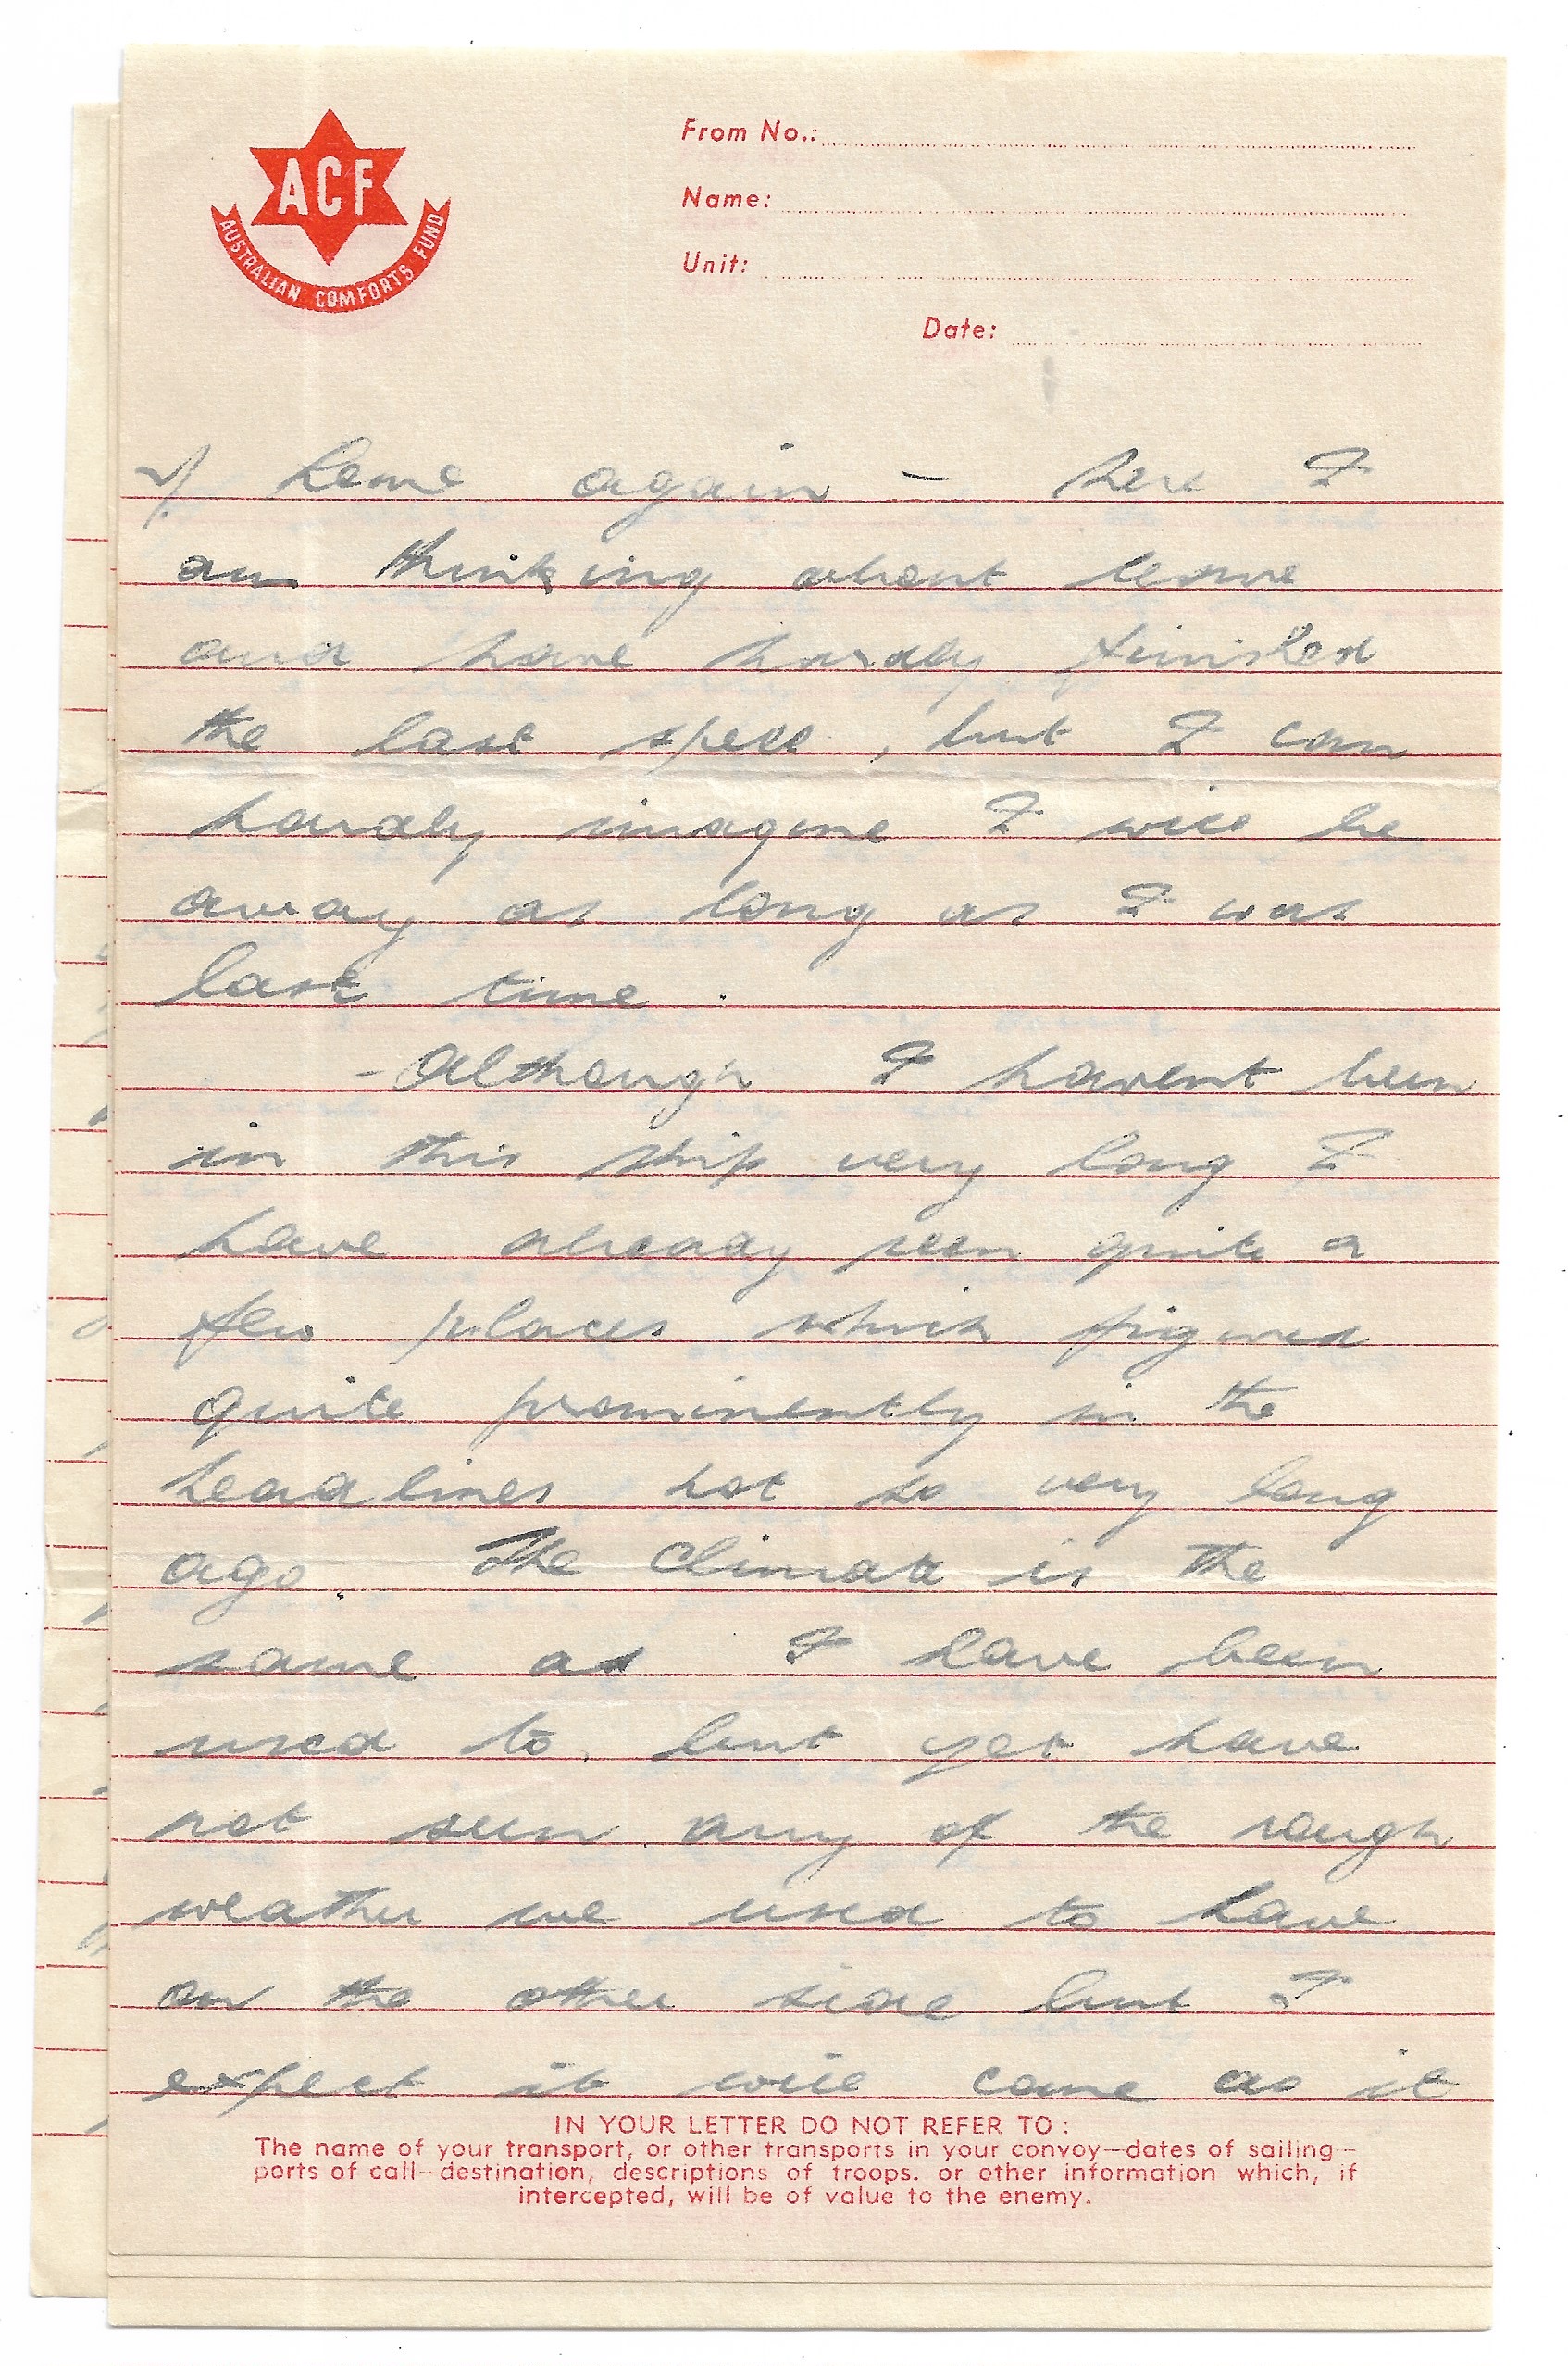 ACF
AUSTRALIAN COMFORTS FUND
From No.:
Name:
Unit:
Date:
home again – here I
am thinking about leave
and have hardly finished
the last spell, but I can
hardly imagine I will be
away as long as I was
last time.
- Although I havent been
in this ship very long I
have already seen quite a
few places which figured
quite prominently in the
headlines not so very long
ago. The climate is the
same as I have been
used to, but yet have
not seen any of the rough
weather we used to have
on the other side but I
expect it will come as it
IN YOUR LETTER DO NOT REFER TO :
The name of your transport, or other transports in your convoy—dates of sailing—
ports of call—destination, descriptions of troops. or other information which, if
intercepted, will be of value to the enemy.